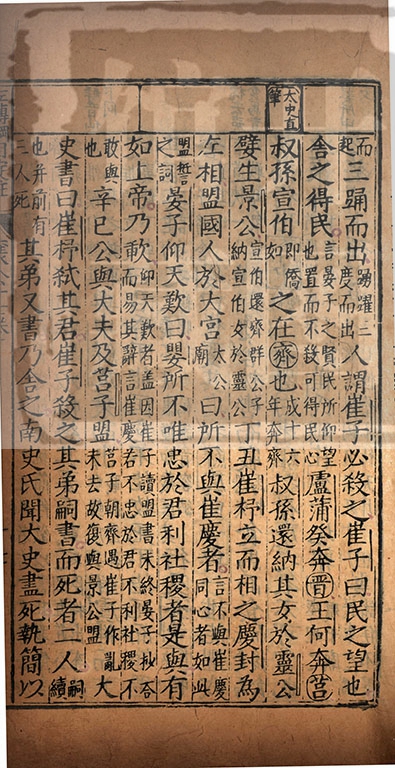 太史直筆
而起三踊而出踴躍三度而出人謂崔子必殺之崔子曰民之望也
舍之得民言晏子之賢民所仰望也置而不殺可得民心盧蒲癸奔晉王何奔莒
叔孫宣伯即僑如之在齊也成十六年奔齊叔孫還納其女於靈公
嬖生景公宣伯還齊群公子納宣伯女於靈公丁丑崔杼立而相之慶封為
左相盟國人於大宮太公廟曰所不與崔慶者言不與崔慶同心者如此
盟誓之詞晏子仰天歎曰嬰所不唯忠於君利社稷者是與有
如上帝乃歃仰天歎者盖因崔子讀盟書未終晏子抄答而易其辭言崔慶若不忠於君不利社稷不
敢與也辛巳公與大夫及莒子盟莒子朝齊遇崔子作亂未去故復與景公盟大
史書曰崔杼弑其君崔子殺之其弟嗣書而死者二人嗣續
也并前有三人死其弟又書乃舍之南史氏聞大史盡死執簡以